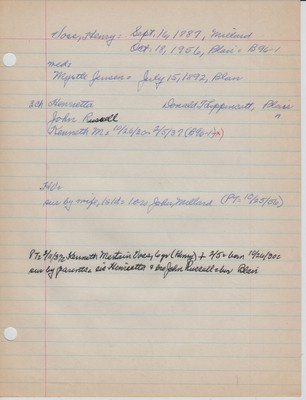 Voss, Henry: Sept. 16, 1887, Millard
Oct. 18, 1956, Blair = B96-1
meds
Myrtle Jensen = July 15, 1892, Blair
3ch Henrietta Donald Lippincott, Blair
John Russell "
Kenneth M. = 10/20/30 - 2/5/37 (B96-1)
Hi/o
sur by wife, 1s 1d = 1 bro John, Millard (PT: 10/25/56)
PT: 2/11/37: Kenneth Voss, 6 yr (Henry) + 2/5 = born 10/20/30
sur by parents = sis Henrietta + bro John Russell = bur Blair